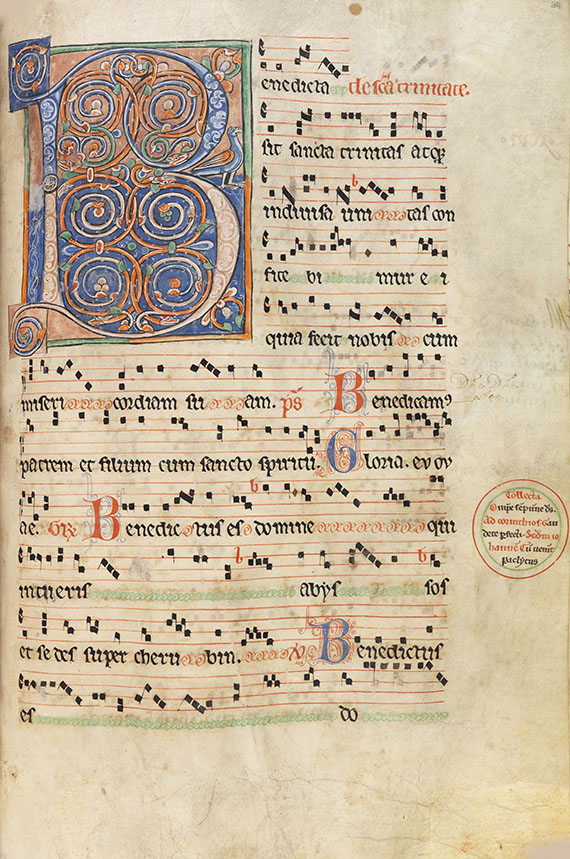 Benedicta de scā trinitate.
sit sancta trinitas atqꝫ
indivisa uni tas con
fite bi mur e i
quia fecit nobis cum
miseri cordiam su am. ps Benedicamꝰ
patrem et filium cum sancto spiritu. Gloria. ev ov
ae. Gr̄ Benedic tus es domine qui
intueris abys sos
et se des super cheru bin. V Benedictus
es do
Collecta
Om̄pe sēpitne ds.
Ad corinthios Gau
dete
hanne Cū uen̄it
paclytus